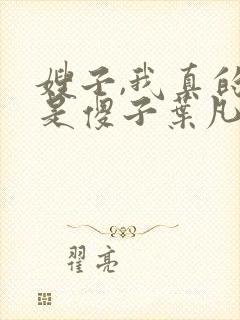 嫂子,我真的
是傻子葉凡
翟亮